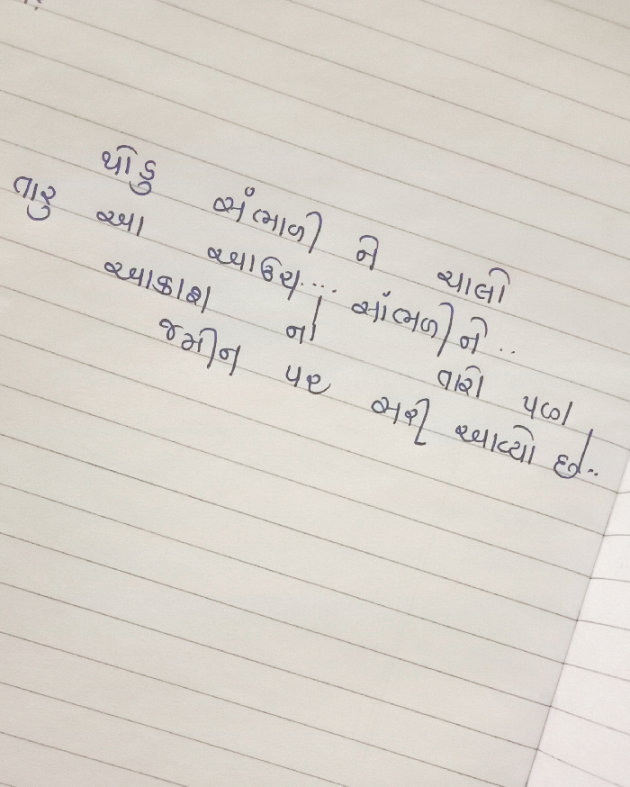 થોડુ સંભાળી ને ચાલો
તારુ આ આઉય... સાંભળી ને..
આકાશ નો તારો પળ
જમીન પર સરી આવ્યો છે..